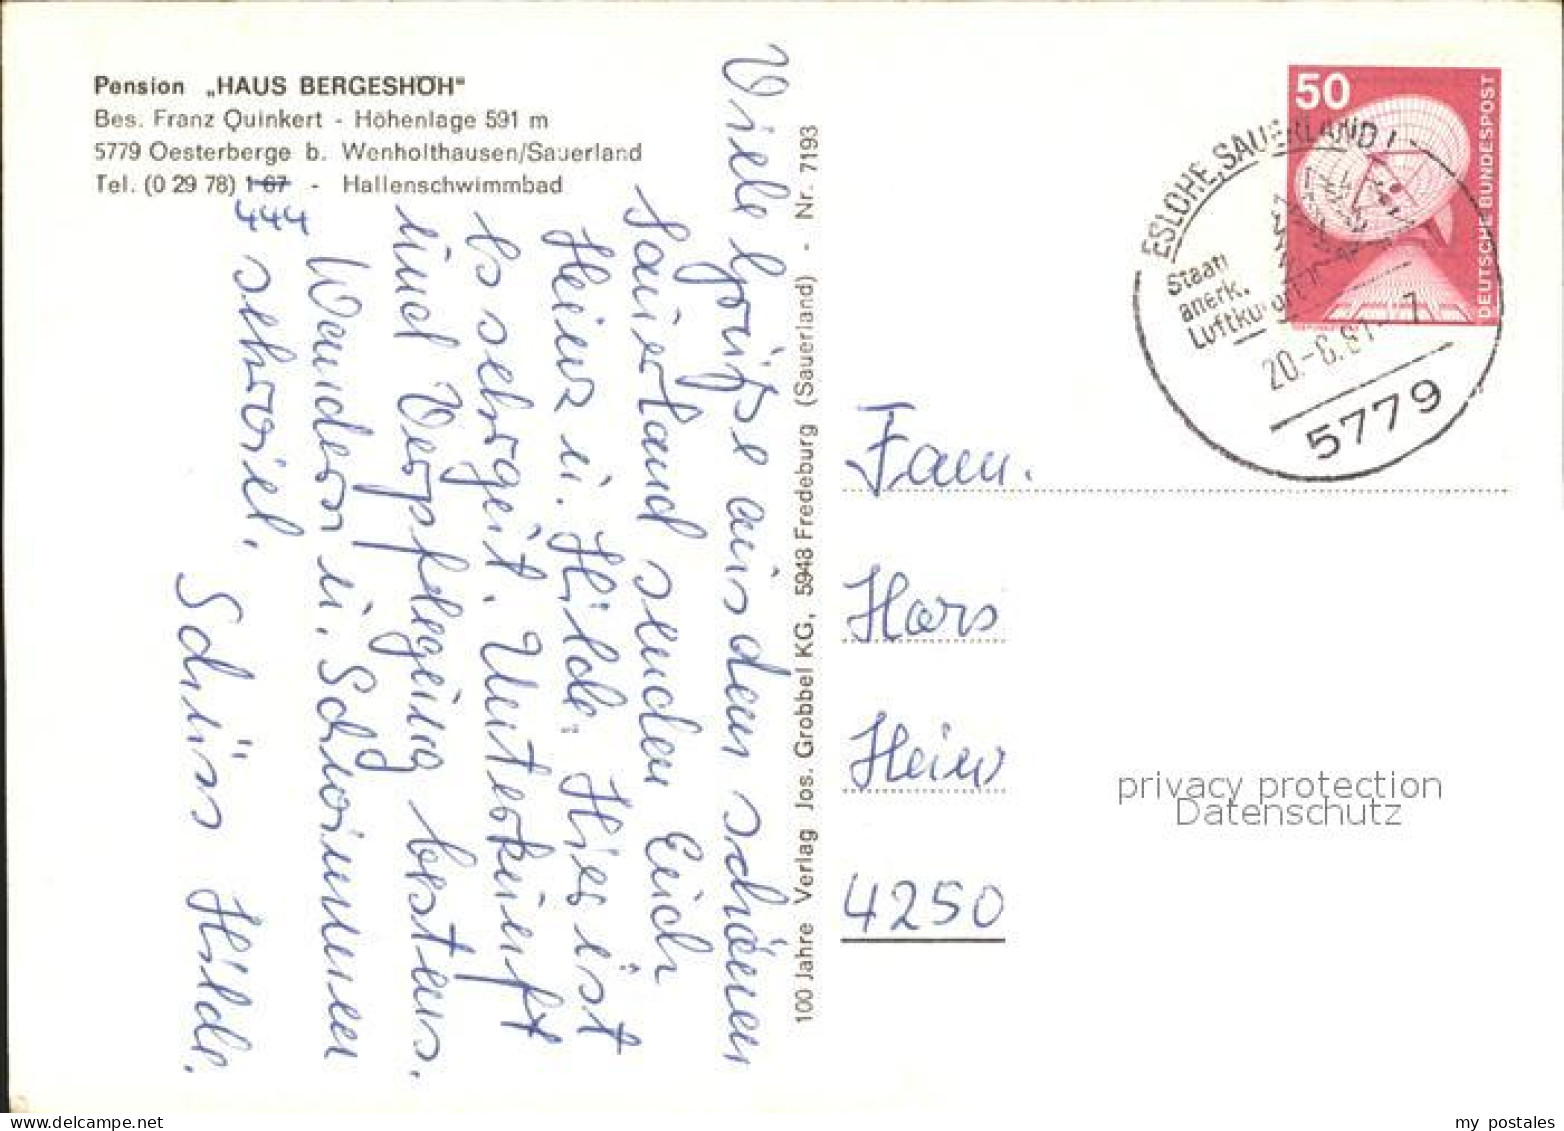 Pension „HAUS BERGESHÖH"
Bes. Franz Quinkert - Höhenlage 591 m
5779 Oesterberge b. Wenholthausen/Sauerland
Tel. (0 29 78) 1 67 - Hallenschwimmbad
444
Viele Grüße aus dem schönen
Sauerland senden Euch
Heinz u. Hilde. Hier ist
es sehr gut. Unterkunft
und Verpflegung bestens.
Wandern u. Schwimmen
sehr viel.
Schüss Hilde.
100 Jahre Verlag Jos. Grobbel KG, 5948 Fredeburg (Sauerland) - Nr. 7193
50
DEUTSCHE BUNDESPOST
ESLOHE, SAUERLAND 1
Staatl
anerk.
Luftkurort
20.-6.81-7
5779
Fam.
Hors
Hein
4250
privacy protection
Datenschutz
my postales